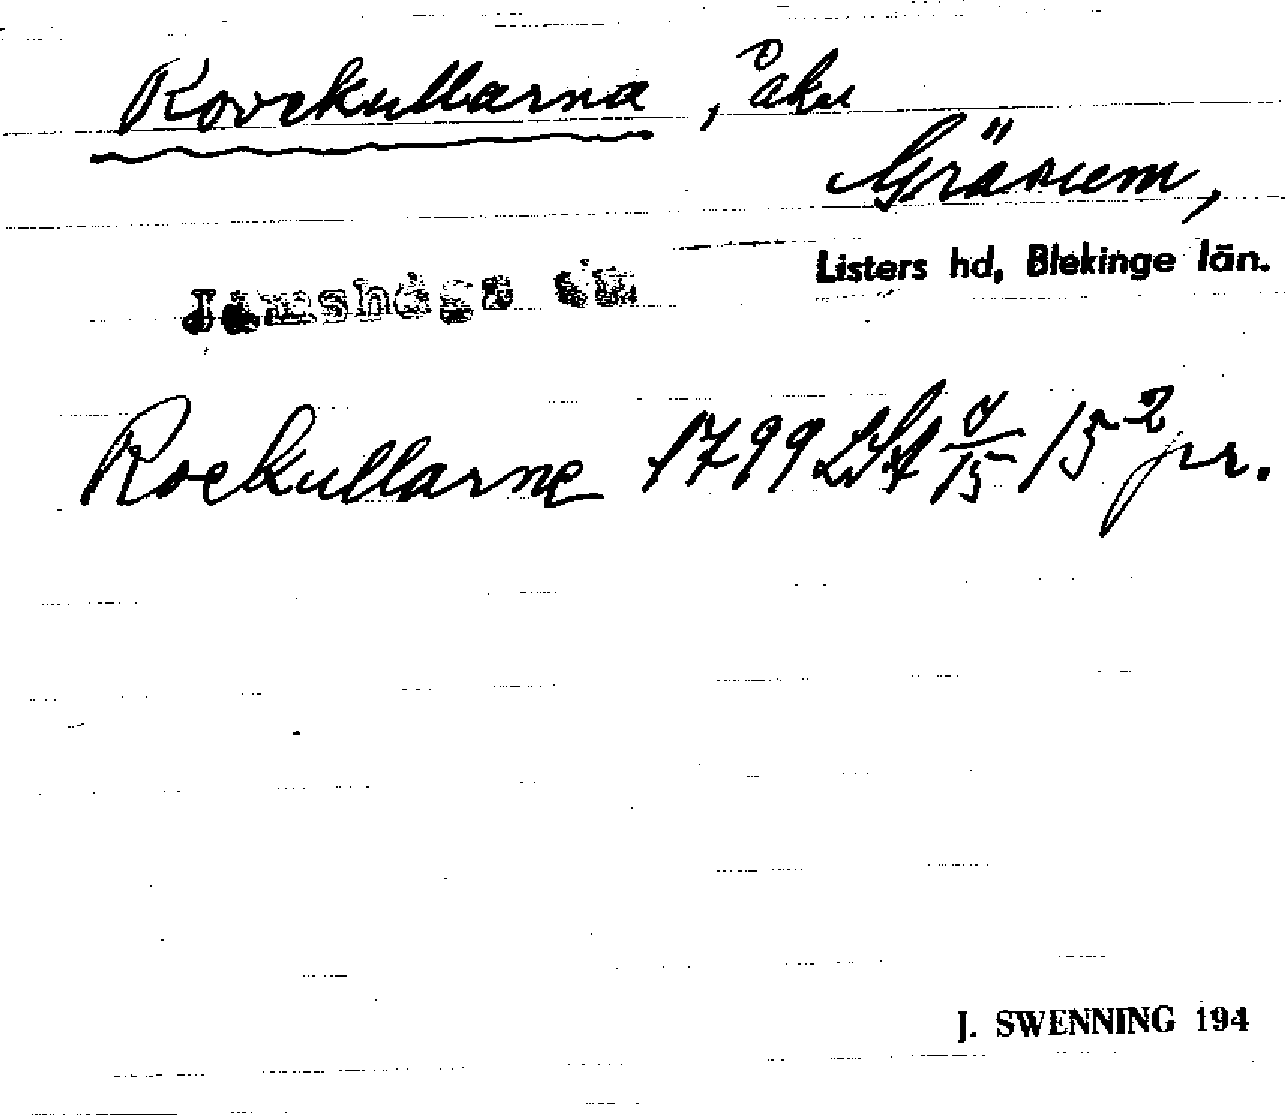 Rovekullarna, åker
Gräsum,
Listers hd, Blekinge län.
Jämshögs sn
Roekullarne 1799 LSA 15 2 pr.
J. SWENNING 194